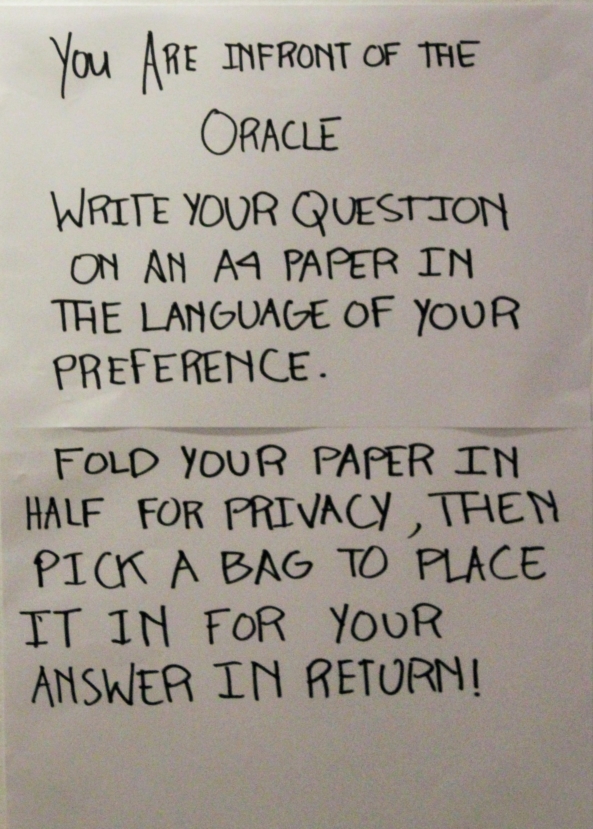 You ARE INFRONT OF THE
ORACLE
WRITE YOUR QUESTION
ON AN A4 PAPER IN
THE LANGUAGE OF YOUR
PREFERENCE.
FOLD YOUR PAPER IN
HALF FOR PRIVACY, THEN
PICK A BAG TO PLACE
IT IN FOR YOUR
ANSWER IN RETURN!